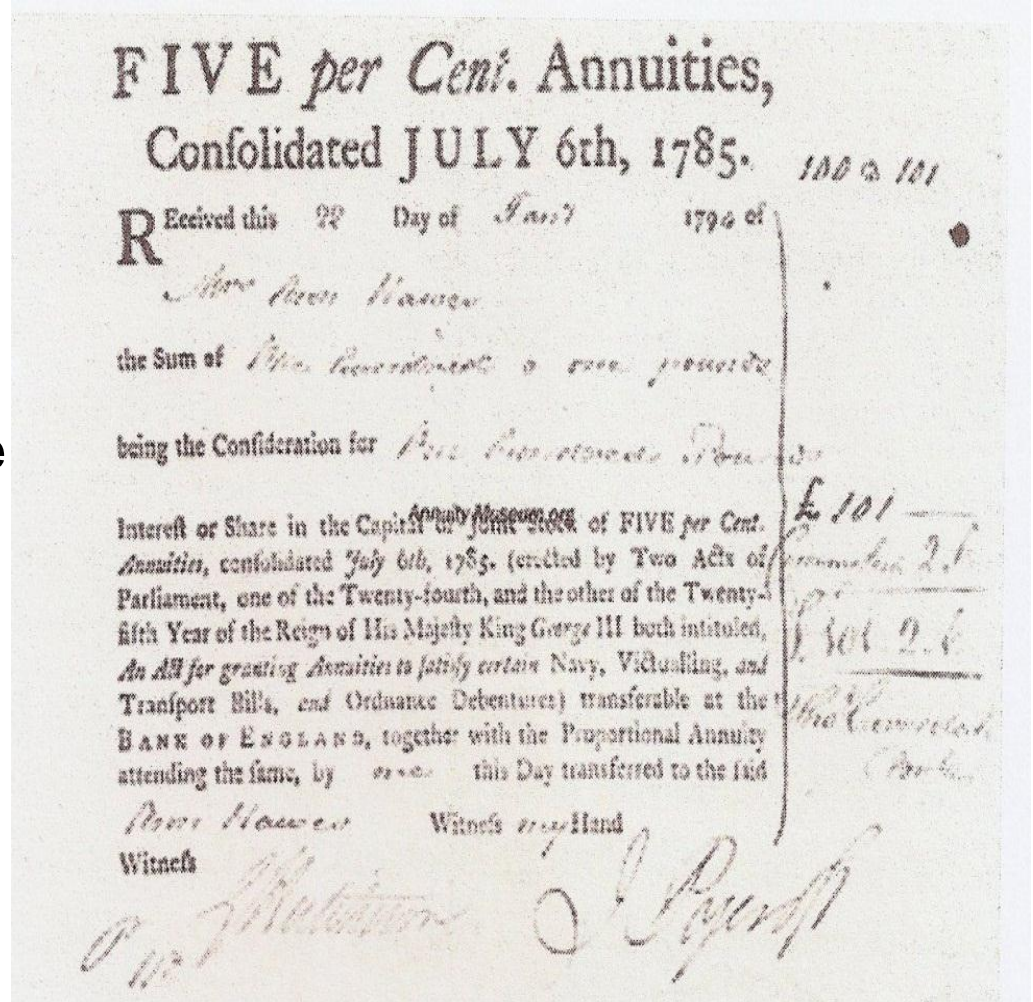 FIVE per Cent. Annuities,
Conſolidated JULY 6th, 1785.
100 @ 101
REceived this 22 Day of Jany 1790 of
Mrs Ann Hawes
the Sum of One Hundred & one pounds
being the Conſideration for One Hundred Pounds
AnnuityMuseum.org
Intereſt or Share in the Capital or Joint Stock of FIVE per Cent.
£101
Annuities, conſolidated July 6th, 1785. (erected by Two Acts of
2.6
Parliament, one of the Twenty-fourth, and the other of the Twenty-
fifth Year of the Reign of His Majeſty King George III both intituled,
£101.2.6
An Act for granting Annuities to ſatisfy certain Navy, Victualling, and
Tranſport Bills, and Ordnance Debentures) transferable at the
BANK OF ENGLAND, together with the Proportional Annuity
attending the ſame, by me this Day transferred to the ſaid
Ann Hawes Witneſs my Hand
Witneſs
e